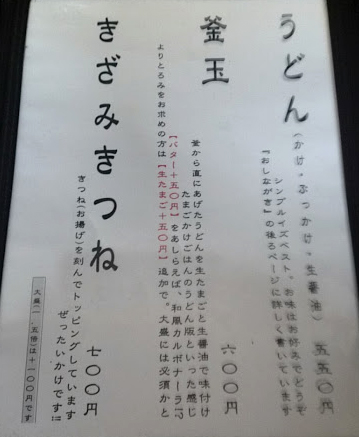 うどん(かけ・ぶっかけ・生醤油) 五五〇円
シンプルイズベスト。お味はお好みでどうぞ
『おしながき』の後ろページに詳しく書いています
釜玉 六〇〇円
釜から直にあげたうどんを生たまごと生醤油で味付け
たまごかけごはんのうどん版といった感じ
【バター+五〇円】をあしらえば、和風カルボナーラ!?
よりとろみをお求めの方は【生たまご+五〇円】追加で。大盛には必須かと
きざみきつね 七〇〇円
きつね(お揚げ)を刻んでトッピングしています
ぜったいかけです!!
大盛(一.五倍)は+一〇〇円です